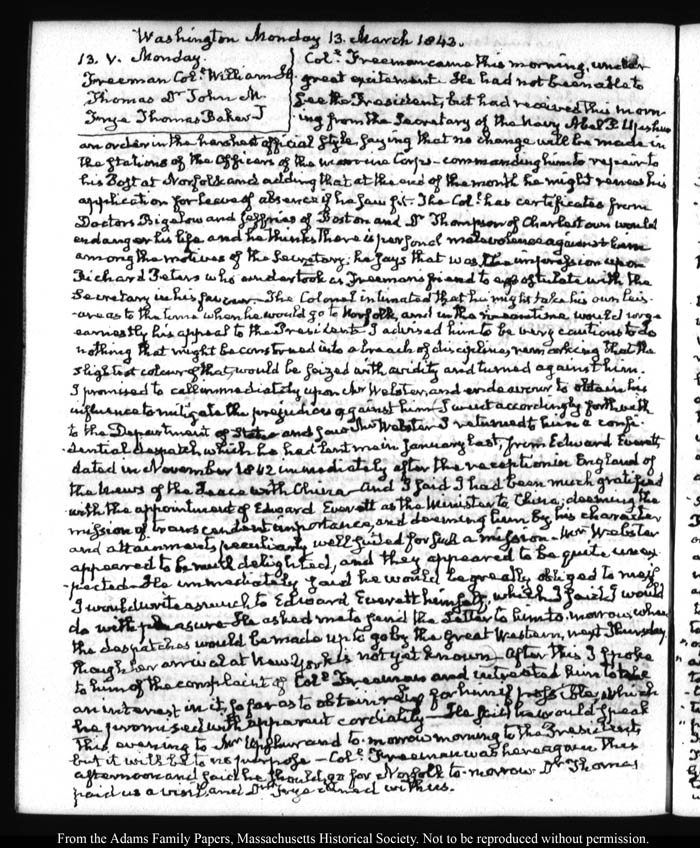 Washington Monday 13. March 1843.
13. V. Monday.
Freeman Col.l William H.
Thomas Dr John M
Frye Thomas Baker J
Col.l Freeman came this morning, under
great excitement. He had not been able to
see the President, but had received this morn-
ing from the Secretary of the Navy Abel P. Upshur
an order in the harshest official style, saying that no change will be made in
the stations of the Officers of the marine Corps— commanding him to repair to
his Post at Norfolk and adding that at the end of the month he might renew his
application for leave of absence if he saw fit. The Col.l has certificates from
Doctors Bigelow and Jeffries of Boston and Dr Thompson of Charlestown would
endanger his life and he thinks there is personal malevolence against him
among the motives of the Secretary; he says that was the impression upon
Richard Peters who undertook as Freeman's friend to expostulate with the
Secretary in his favour. The Colonel intimated that he might take his own leis-
-ure as to the time when he would go to Norfolk, and in the meantime would urge
earnestly his appeal to the President. I advised him to be very cautious to do
nothing that might be construed into a breach of discipline, remarking that the
slightest colour of that, would be seized with avidity and turned against him.
I promised to call immediately upon Mr Webster, and endeavour to obtain his
influence to mitigate the prejudices against him. I went accordingly forthwith
to the Department of State and saw Mr Webster. I returned to him a confi-
-dential despatch which he had lent me in January last, from Edward Everett
dated in November 1842 immediately after the reception in England of
the News of the Peace with China— And I said I had been much gratified
with the appointment of Edward Everett as the Minister to China; deeming the
mission of transcendent importance, and deeming him by his character
and attainments peculiarly well suited for such a mission— Mr Webster
appeared to be much delighted, and they appeared to be quite unex-
-pected. He immediately said he would be greatly obliged to me if
I would write as much to Edward Everett himself, which I said I would
do with pleasure. He asked me to send the Letter to him to-morrow, when
the despatches would be made up to go by the Great Western, next Thursday,
though her arrival at New York is not yet known. After this I spoke
to him of the complaint of Col.l Freeman and intreated him to take
an interest in it, so far as to obtain relief for him if possible, which
he promised with apparent cordiality— He said, he would speak
this evening to Mr Upshur and to-morrow morning to the President,
but it will be to no purpose— Col.l Freeman was here again this
afternoon and said he should go for Norfolk to-morrow. Dr Thomas
paid us a visit, and Dr Frye dined with us.
From the Adams Family Papers, Massachusetts Historical Society. Not to be reproduced without permission.